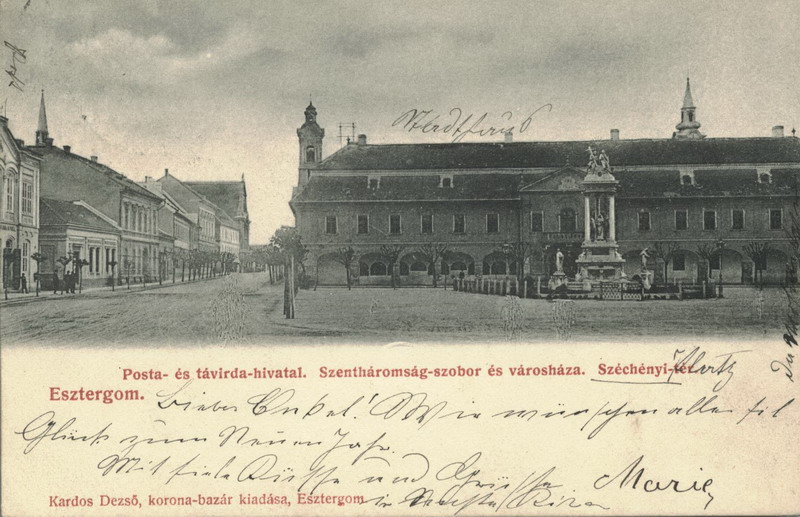 Stadthaus
Posta- és távirda-hivatal. Szentháromság-szobor és városháza. Széchényi-tér
Platz
Esztergom. Lieber Onkel! Wir wünschen alle fil
Glück zum Neuen Jahr.
Mit file Küsse und Grüsse
Marie
Kardos Dezső, korona-bazár kiadása, Esztergom